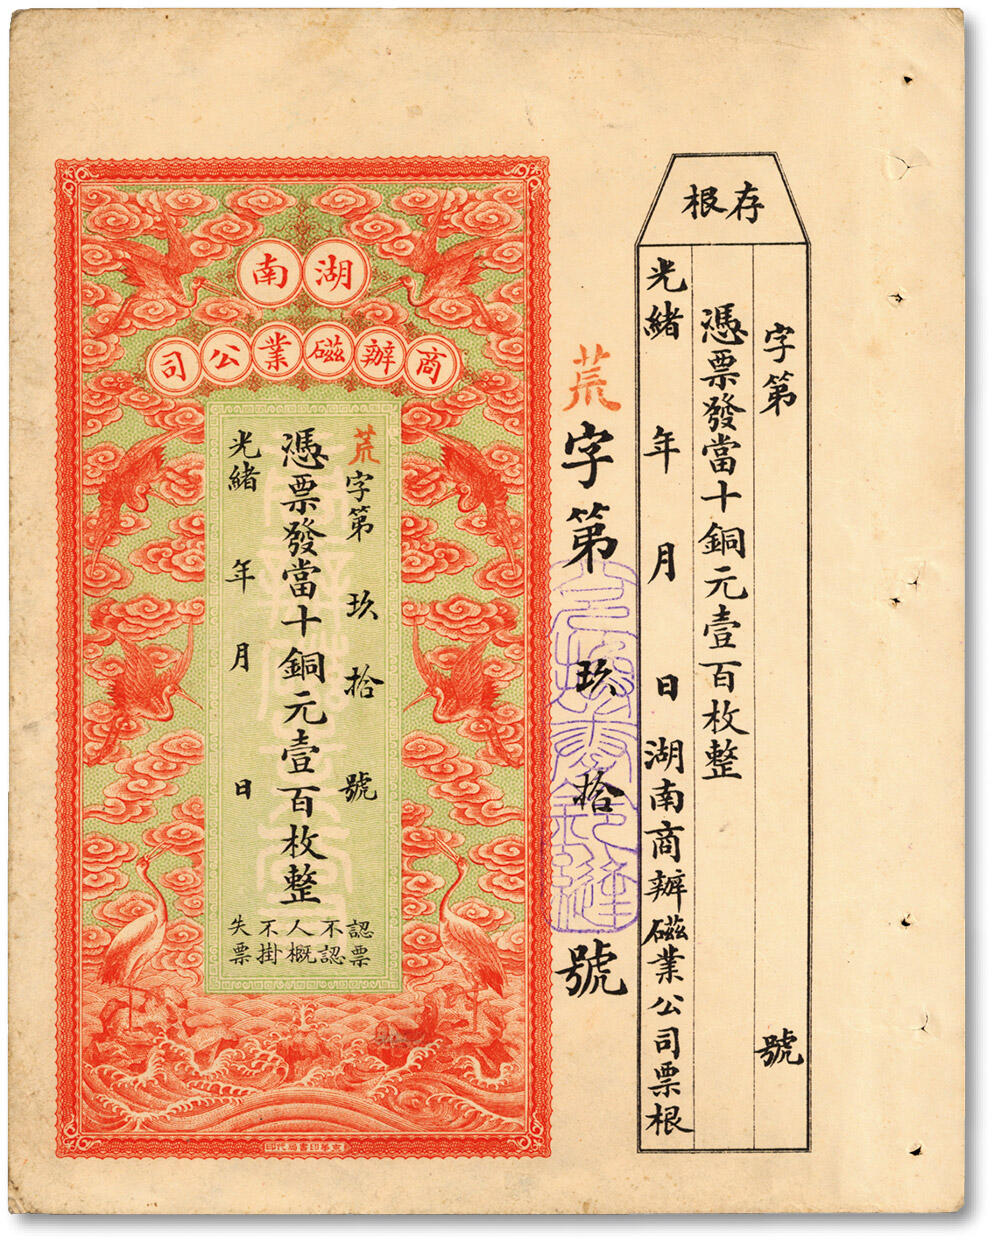 存根
字第　號
憑票發當十銅元壹百枚整
光緒　年　月　日湖南商辦磁業公司票根
荒字第玖拾號
湖南
商辦磁業公司
荒字第玖拾號
憑票發當十銅元壹百枚整
光緒　年　月　日
認票
不認
人概
不掛
失票
京華印書局代印